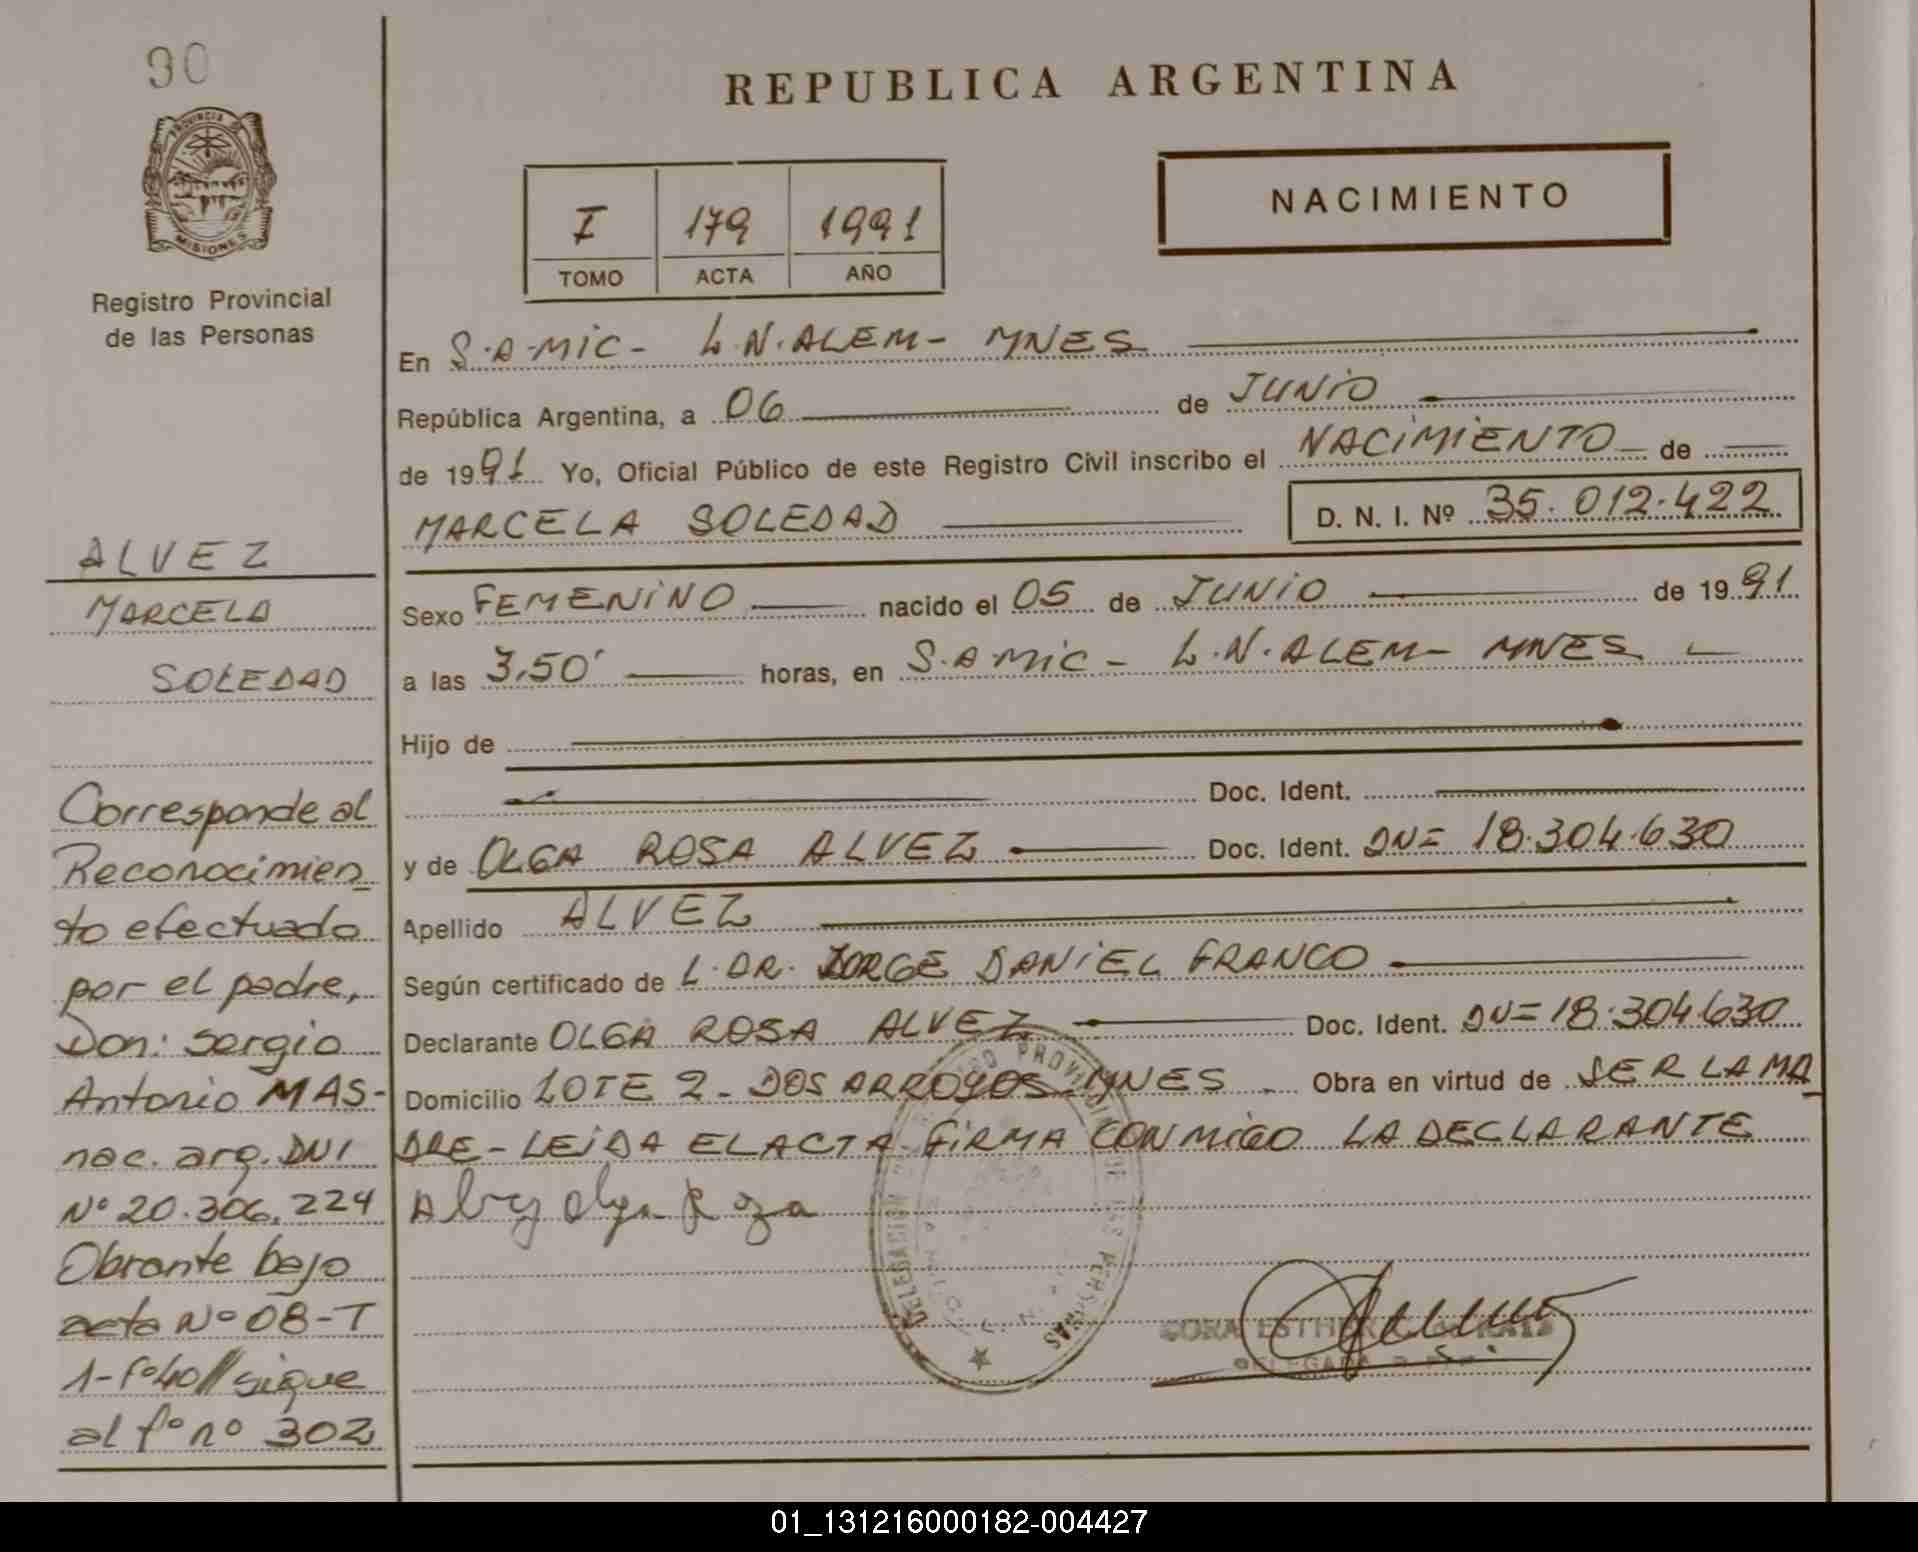 90
PROVINCIA DE
MISIONES
Registro Provincial
de las Personas
ALVEZ
MARCELA
SOLEDAD
Corresponde al
Reconocimien
to efectuado
por el padre,
Don: Sergio
Antonio MAS-
nac. arg. DNI
Nº 20.306.224
Obrante bajo
acta Nº 08-T
1-fº40// sigue
al fº nº 302
REPUBLICA ARGENTINA
I 179 1991
TOMO ACTA AÑO
NACIMIENTO
En S.A-MIC- L.N.ALEM- MNES
República Argentina, a 06 de JUNIO
de 1991 Yo, Oficial Público de este Registro Civil inscribo el NACIMIENTO de
MARCELA SOLEDAD D. N. I. Nº 35.012.422
Sexo FEMENINO nacido el 05 de JUNIO de 1991
a las 3,50' horas, en S.A MIC- L.N.ALEM- MNES
Hijo de
Doc. Ident.
y de OLGA ROSA ALVEZ Doc. Ident. DN= 18.304.630
Apellido ALVEZ
Según certificado de L. DR. JORGE DANIEL FRANCO
Declarante OLGA ROSA ALVEZ Doc. Ident. DN= 18.304.630
Domicilio LOTE 2- DOS ARROYOS- MNES Obra en virtud de SER LA MA
DRE- LEIDA EL ACTA FIRMA CONMIGO LA DECLARANTE
DELEGACION PROVINCIAL DE LAS PERSONAS
01_131216000182-004427